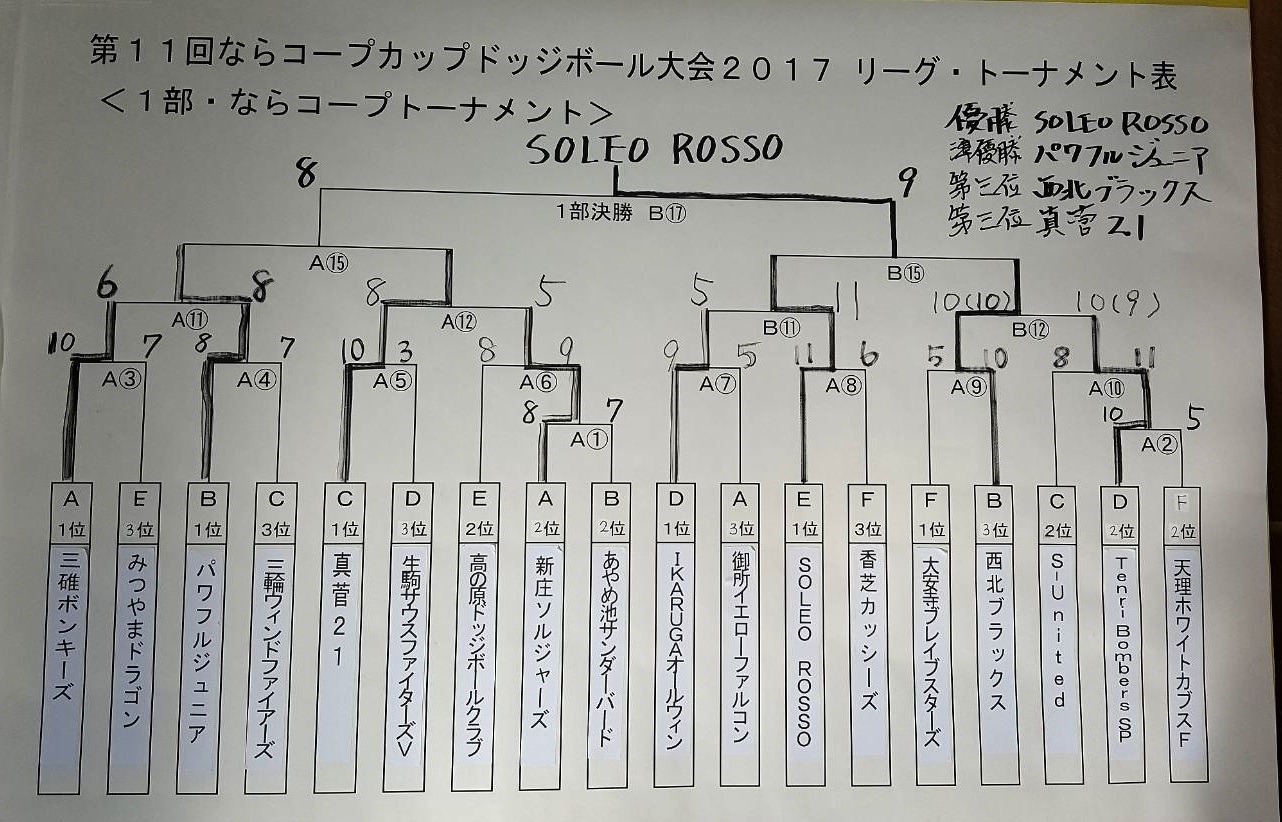 第11回ならコープカップドッジボール大会2017 リーグ・トーナメント表
＜1部・ならコープトーナメント＞
優勝 SOLEO ROSSO
準優勝 パワフルジュニア
第三位 西北ブラックス
第三位 真菅21
SOLEO ROSSO
8 9
1部決勝 B⑰
A⑮ B⑮
6 8 8 5 5 11 10(10) 10(9)
A⑪ A⑫ B⑪ B⑫
10 7 8 7 10 3 8 9 9 5 11 6 5 10 8 11
A③ A④ A⑤ A⑥ A⑦ A⑧ A⑨ A⑩
8 7 10 5
A① A②
A E B C C D E A B D A E F F B C D F
1位 3位 1位 3位 1位 3位 2位 2位 2位 1位 3位 1位 3位 1位 3位 2位 2位 2位
三碓ボンキーズ
みつやまドラゴン
パワフルジュニア
三輪ウィンドファイアーズ
真菅21
生駒サウスファイターズV
高の原ドッジボールクラブ
新庄ソルジャーズ
あやめ池サンダーバード
IKARUGAオールウィン
御所イエローファルコン
SOLEO ROSSO
香芝カッシーズ
大安寺ブレイブスターズ
西北ブラックス
S-United
Tenri Bombers SP
天理ホワイトカブスF